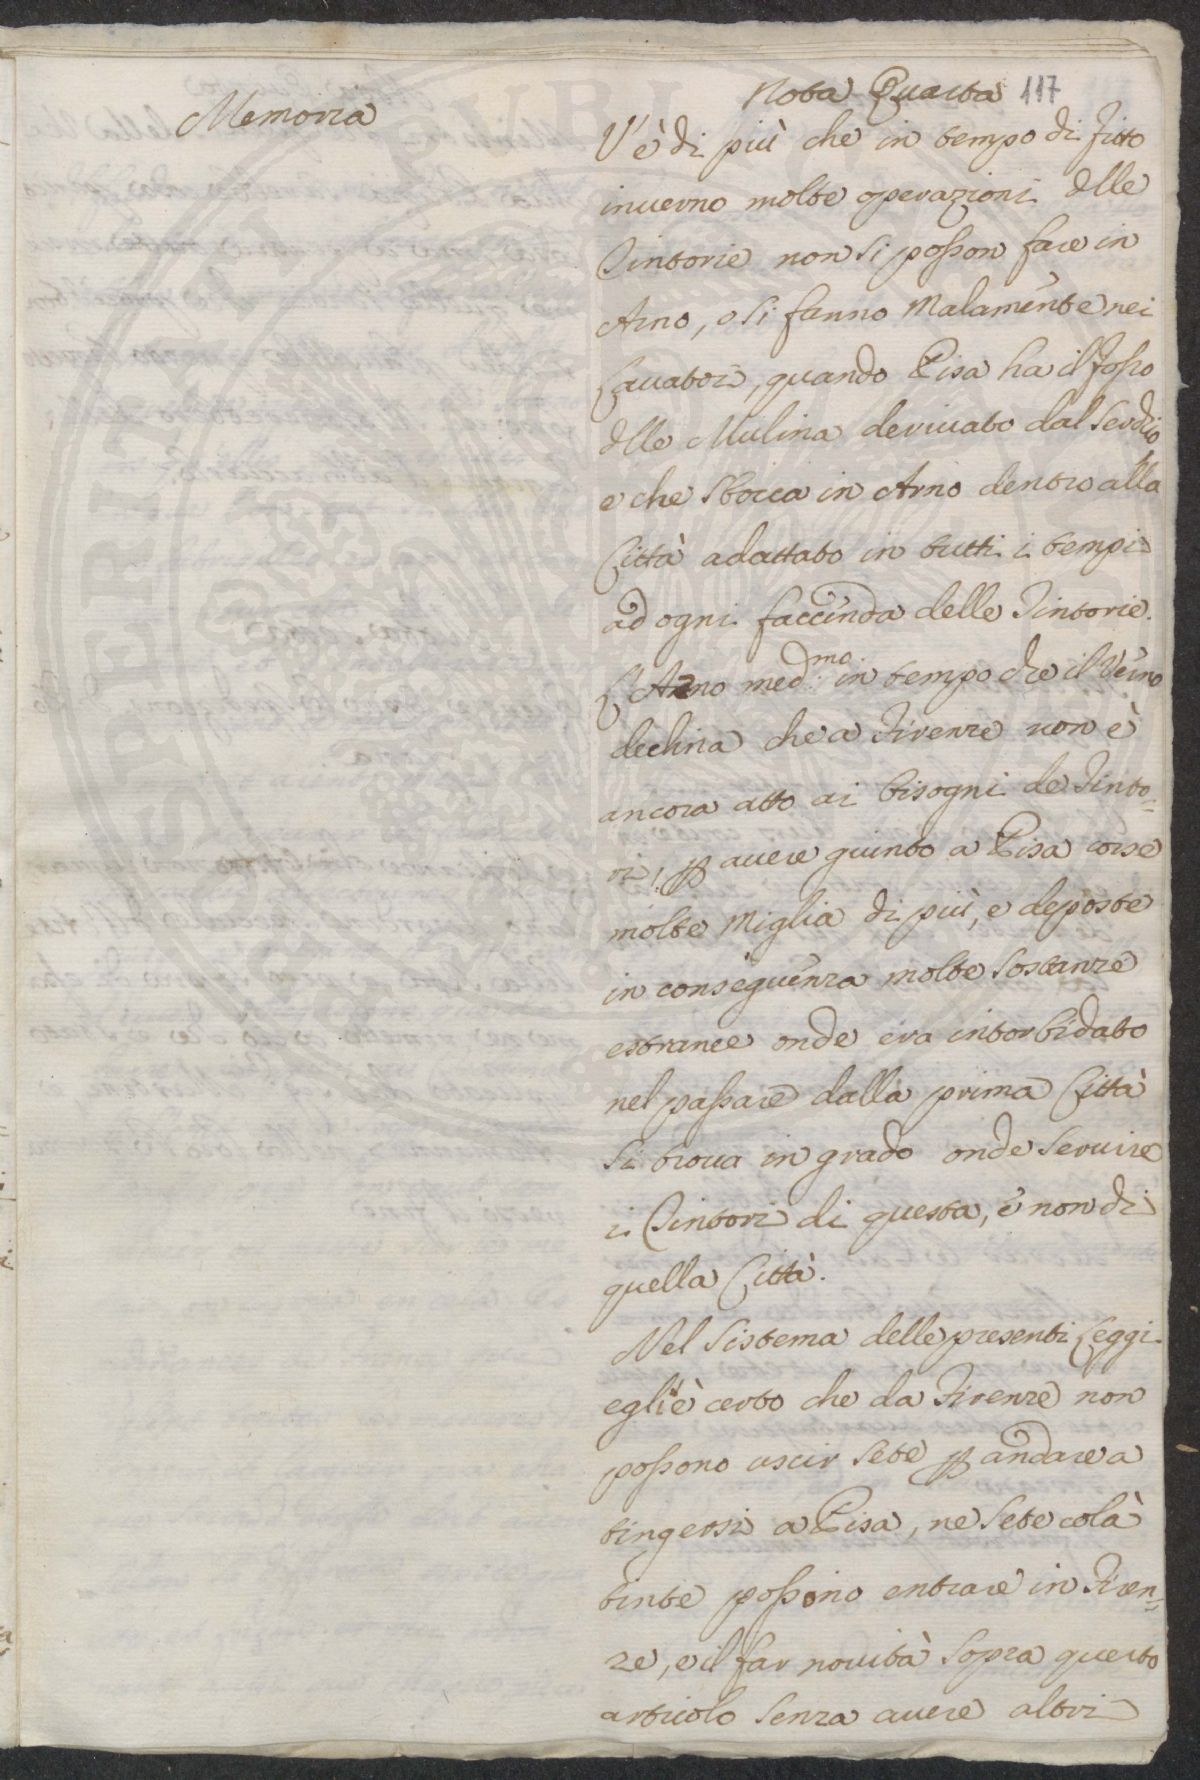 Memoria
Nota Quarta 117
V'è di più che in tempo di fitto
inverno molte operazioni dlle
Tintorie non si posson fare in
Arno, o si fanno Malamente nei
Lavatoi, quando Pisa ha il fosso
dlle Mulina derivato dal Serchio
e che sbocca in Arno dentro alla
Città adattato in tutti i tempi
ad ogni faccenda delle Tintorie.
L'Arno med.mo in tempo che il Verno
declina che a Firenze non è
ancora atto ai bisogni de Tinto=
ri, p avere quinto a Pisa corse
molte Miglia di più, e deposte
in conseguenza molte sostanze
estranee onde era intorbidato
nel passare dalla prima Città
si trova in grado onde servire
i Tintori di questa, e non di
quella Città.
Nel Sistema delle presenti Leggi
egli è certo che da Firenze non
possono uscir sete p andare a
tingersi a Pisa, ne sete colà
tinte possono entrare in Firen=
ze, e il far novità sopra questo
articolo senza avere altri